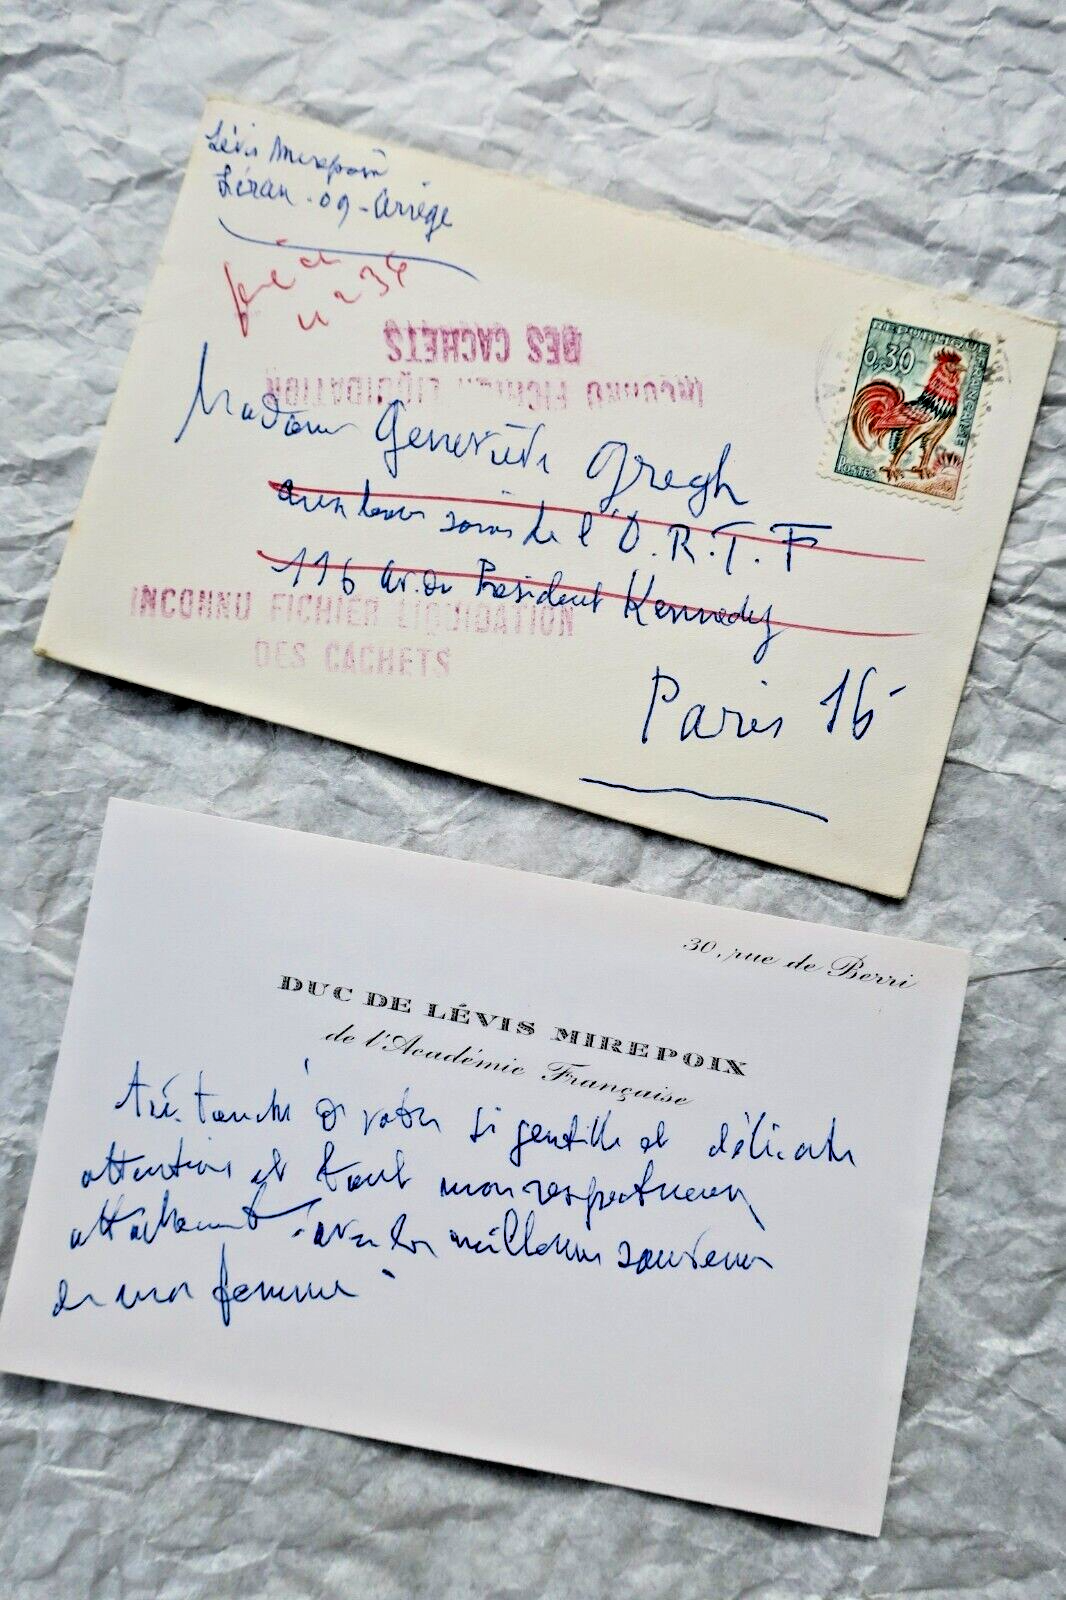 Lévis Mirepoix
Léran - 09 - Ariège
234
INCONNU FICHIER LIQUIDATION
DES CACHETS
REPUBLIQUE FRANÇAISE
0,30
POSTES
Madame Geneviève Gregh
aux bons soins de l'O.R.T.F
116 av. du Président Kennedy
INCONNU FICHIER LIQUIDATION
DES CACHETS
Paris 16
30, rue de Berri
DUC DE LÉVIS MIREPOIX
de l'Académie Française
très touché de votre si gentille et délicate
attention et tout mon respectueux
attachement avec les meilleurs souvenirs
de ma femme